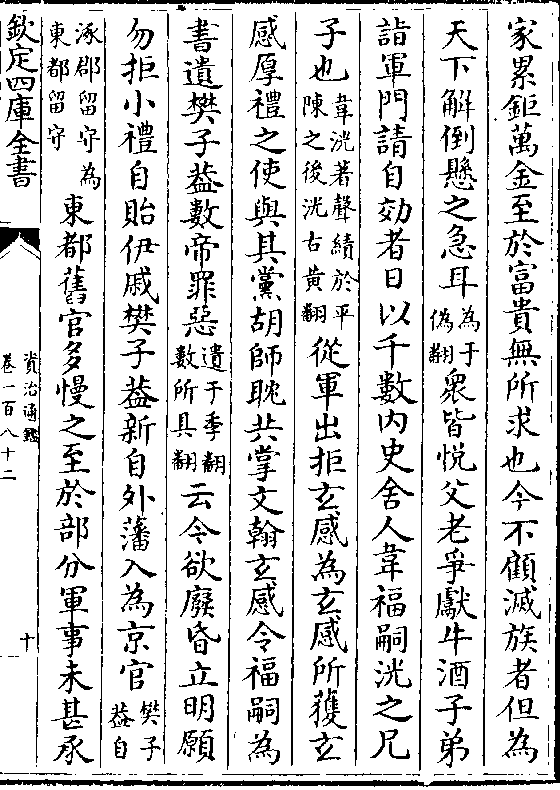 家累鉅萬金至於富貴無所求也今不顧滅族者但為
天下解倒懸之急耳為于偽翻衆皆悦父老爭獻牛酒子弟
詣軍門請自効者日以千數内史舍人韋福嗣洸之兄
子也韋洸著聲績於平陳之後洸古黄翻從軍出拒玄感為玄感所獲玄
感厚禮之使與其黨胡師耽共掌文翰玄感令福嗣為
書遺樊子葢數帝罪惡遺于季翻數所具翻云今欲廢昏立明願
勿拒小禮自貽伊戚樊子葢新自外藩入為京官樊子葢自
涿郡留守為東都留守東都舊官多慢之至於部分軍事未甚承
欽定四庫全書
資治通鑑
卷一百八十二
十